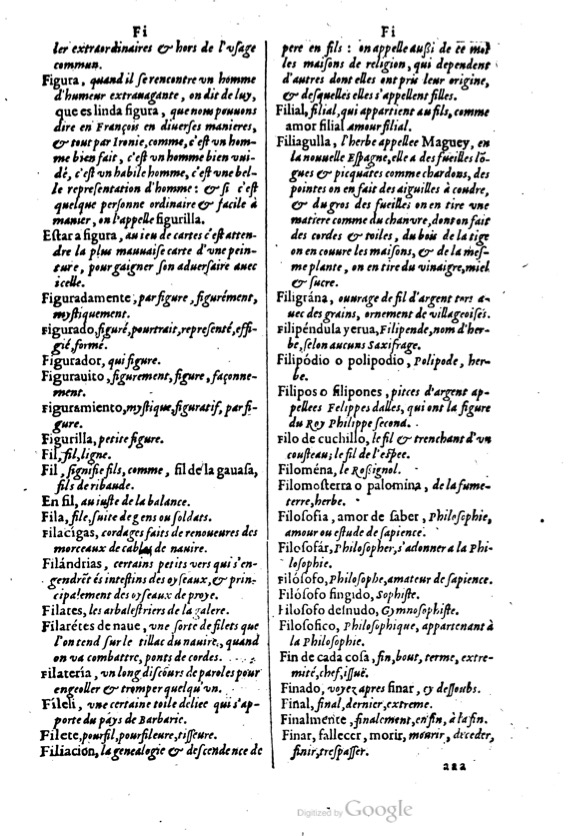 Fi
ler extraordinaires & hors de l'vsage
commun.
Figura, quand il se rencontre vn homme
d'humeur extrauagante, on dit de luy,
que es linda figura, que nous pouuons
dire en François en diuerses manieres,
& tout par Ironie, comme, c'est vn hom-
me bien fait, c'est vn homme bien vui-
dé, c'est vn habile homme, c'est vne bel-
le representation d'homme: & si c'est
quelque personne ordinaire & facile à
manier, on l'appelle figurilla.
Estar a figura, au ieu de cartes c'est atten-
dre la plus mauuaise carte d'vne pein-
ture, pour gaigner son aduersaire auec
icelle.
Figuradamente, par figure, figurément,
mystiquement.
Figurado, figuré, pourtrait, representé, effi-
gié, formé.
Figurador, qui figure.
Figurauito, figurement, figure, façonne-
ment.
Figuramiento, mystique, figuratif, par fi-
gure.
Figurilla, petite figure.
Fil, fil, ligne.
Fil, signifie fils, comme, fil de la gauasa,
fils de ribaude.
En fil, au iuste de la balance.
Fila, file, suite de gens ou soldats.
Filacigas, cordages faits de renoueures des
morceaux de cables de nauire.
Filándrias, certains petits vers qui s'en-
gendrẽt és intestins des oyseaux, & prin-
cipalement des oyseaux de proye.
Filates, les arbalestriers de la galere.
Filarétes de naue, vne sorte de filets que
l'on tend sur le tillac du nauire, quand
on va combattre, ponts de cordes.
Filateria, vn long discours de paroles pour
engeoller & tromper quelqu'vn.
Fileli, vne certaine toile deliee qui s'ap-
porte du pays de Barbarie.
Filete, pourfil, pourfileure, tisseure.
Filiacion, la genealogie & descendence de
Fi
pere en fils: on appelle aussi de ce mot
les maisons de religion, qui dependent
d'autres dont elles ont pris leur origine,
& desquelles elles s'appellent filles.
Filial, filial, qui appartient au fils, comme
amor filial amour filial.
Filiagulla, l'herbe appellee Maguey, en
la nouuelle Espagne, elle a des fueilles lõ-
gues & picquātes comme chardons, des
pointes on en fait des aiguilles à coudre,
& du gros des fueilles on en tire vne
matiere comme du chanure, dont on fait
des cordes & toiles, du bois de la tige
on en couure les maisons, & de la mes-
me plante, on en tire du vinaigre, miel
& sucre.
Filigrána, ouurage de fil d'argent tors a-
uec des grains, ornement de villageoises.
Filipéndula yerua, Filipende, nom d'her-
be, selon aucuns Saxifrage.
Filipódio o polipodio, Polipode, her-
be.
Filipos o filipones, pieces d'argent ap-
pellees Felippes dalles, qui ont la figure
du Roy Philippe second.
Filo de cuchillo, le fil & trenchant d'vn
cousteau; le fil de l'espee.
Filoména, le Rossignol.
Filomosterra o palomina, de la fume-
terre, herbe.
Filosofia, amor de saber, Philosophie,
amour ou estude de sapience.
Filosofár, Philosopher, s'adonner a la Phi-
losophie.
Filósofo, Philosophe, amateur de sapience.
Filosofo fingido, Sophiste.
Filosofo desnudo, Gymnosophiste.
Filosofico, Philosophique, appartenant à
la Philosophie.
Fin de cada cosa, fin, bout, terme, extre-
mité, chef, issuë.
Finado, voyez apres finar, cy dessoubs.
Final, final, dernier, extreme.
Finalmente, finalement, en fin, à la fin.
Finar, fallecer, morir, mourir, deceder,
finir, trespasser.
aaa
Digitized by Google